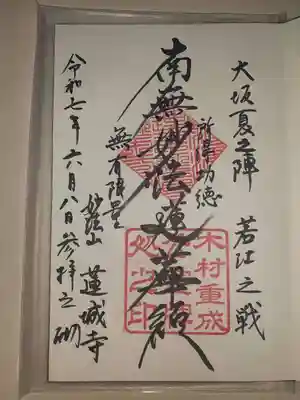 大坂夏之陣
若江之戦
所得功徳
南無妙法蓮華経
無有限量
木村重成
妙法山
蓮城寺
令和七年六月八日参拝之砌